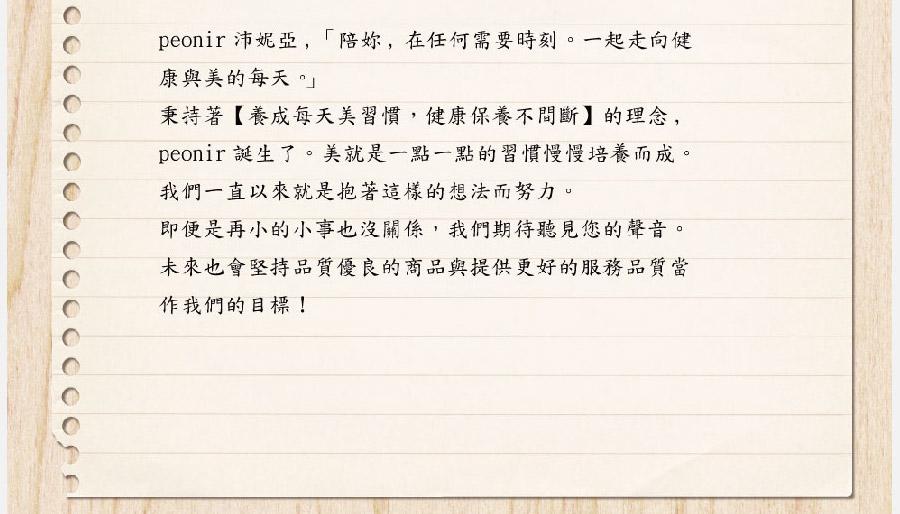 peonir 沛妮亞，「陪妳，在任何需要時刻。一起走向健
康與美的每天。」
秉持著【養成每天美習慣，健康保養不間斷】的理念，
peonir 誕生了。美就是一點一點的習慣慢慢培養而成。
我們一直以來就是抱著這樣的想法而努力。
即便是再小的小事也沒關係，我們期待聽見您的聲音。
未來也會堅持品質優良的商品與提供更好的服務品質當
作我們的目標！